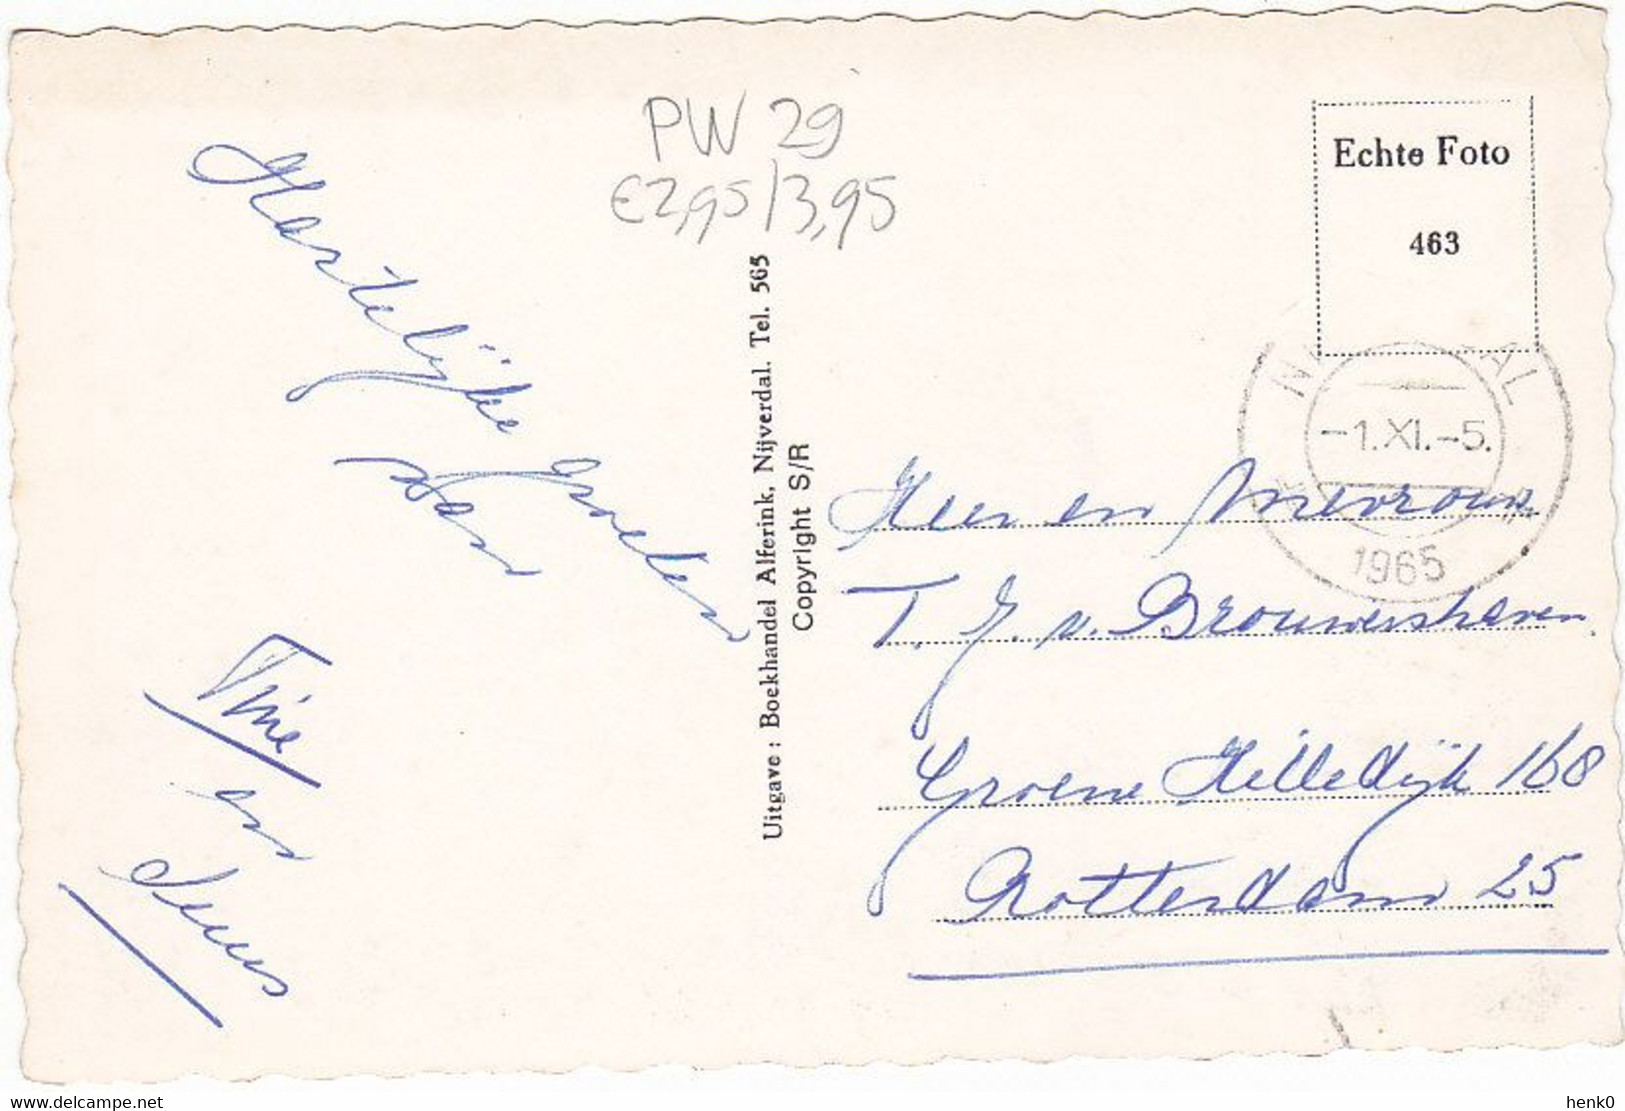 PW 29
€2,95/3,95
Hartelijke groeten
van
Tine en
Teus
Uitgave : Boekhandel Alferink, Nijverdal. Tel. 565
Copyright S/R
Echte Foto
463
N AL
-1.XI.-5.
1965
Heer en Mevrouw
T. J. v. Brouwershaven
Groene Hilledijk 168
Rotterdam 25
www.delcampe.net
henk0